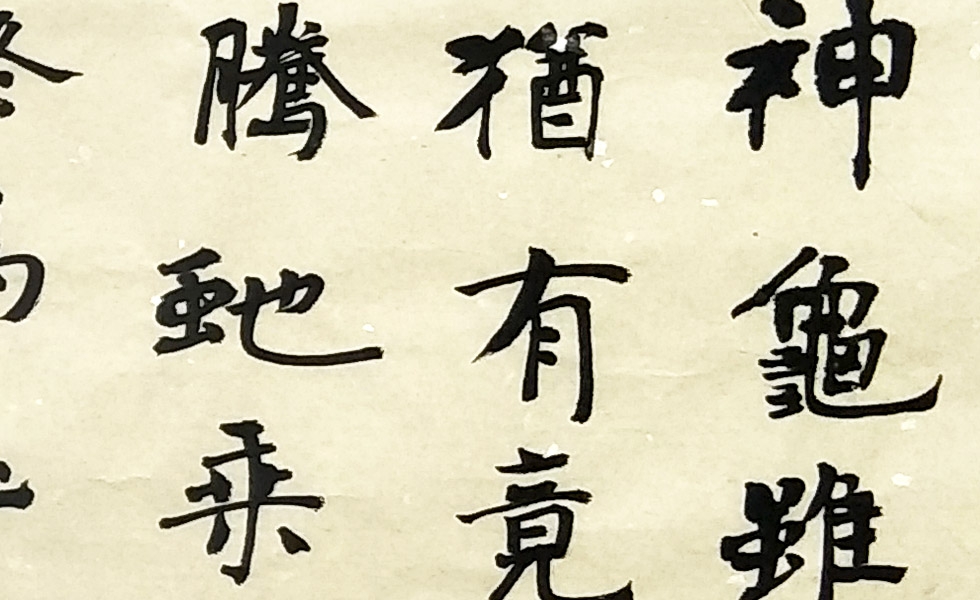 神龜雖
猶有竟
騰虵乘